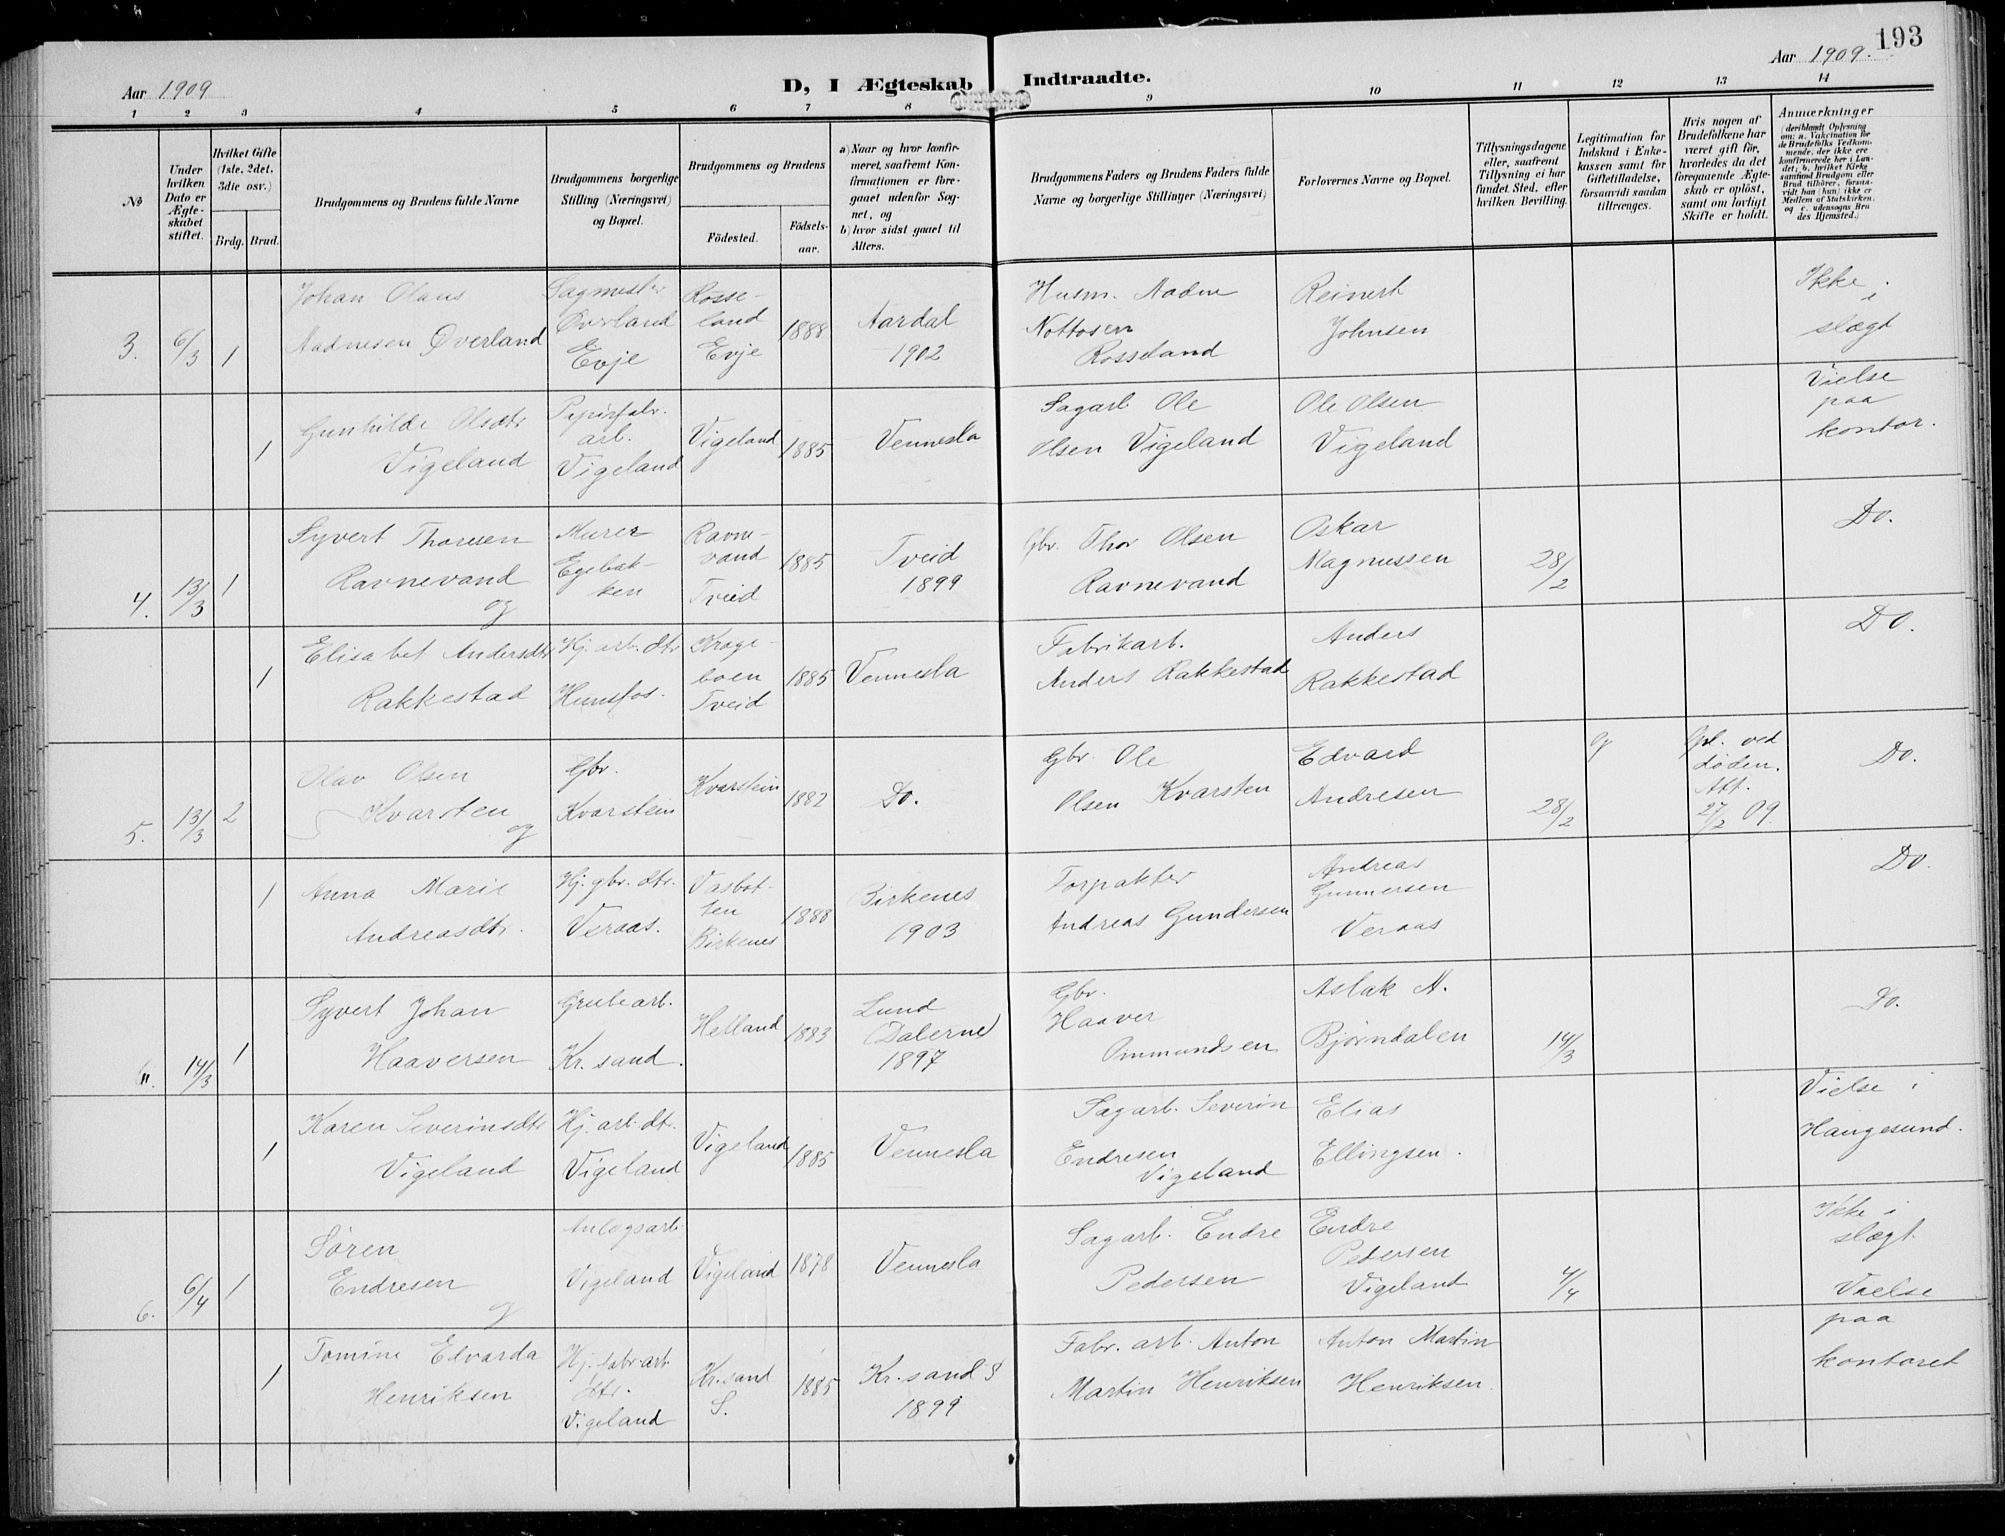 193
Aar 1909
D, I Ægteskab Indtraadte.
Aar 1909.
1 2 3 4 5 6 7 8 9 10 11 12 13 14
No
Under hvilken Dato er Ægteskabet stiftet.
Hvilket Gifte (1ste, 2det, 3die osv.)
Brdg. Brud.
Brudgommens og Brudens fulde Navne
Brudgommens borgerlige Stilling (Næringsvei) og Bopæl.
Brudgommens og Brudens
Fødested.
Fødselsaar.
a) Naar og hvor konfirmeret, saafremt Konfirmationen er foregaaet udenfor Sognet, og
b) hvor sidst gaaet til Alters.
Brudgommens Faders og Brudens Faders fulde Navne og borgerlige Stillinger (Næringsvei)
Forlovernes Navne og Bopæl.
Tillysningsdagene eller, saafremt Tillysning ei har fundet Sted, efter hvilken Bevilling.
Legitimation for Indskud i Enkekassen samt for Giftetilladelse, forsaavidt saadan tiltrænges.
Hvis nogen af Brudefolkene har været gift før, hvorledes da det foregaaende Ægteskab er opløst, samt om lovligt Skifte er holdt.
Anmerkninger
(deriblandt Oplysning om: a. Vakcination for de Brudefolks Vedkommende, der ikke ere konfirmerede her i Landet; b. hvilket Kirkesamfund Brudgom eller Brud tilhører, forsavidt han (hun) ikke er Medlem af Statskirken, og c. udensogns Brudes Hjemsted.)
3. 6/3 1
Johan Olaus
Aadnesen Øverland
Sagmester
Øverland
Evje
Rosseland
Evje
1888
Aardal
1902
Husm. Aadne
Nottosen
Rosseland
Reinert
Johnsen
Ikke i
slægt
1
Gunhilde Olsdtr
Vigeland
Papirfabr.
arb.
Vigeland
Vigeland
1885
Vennesla
Sagarb. Ole
Olsen Vigeland
Ole Olsen
Vigeland
Vielse
paa
kontor.
4. 13/3 1
Syvert Thorsen
Ravnevand
og
Murer
Egebakken
Ravnevand
Tveid
1885
Tveid
1899
Gbr. Thor Olsen
Ravnevand
Oskar
Magnussen
28/2
Do.
1
Elisabet Andersdtr
Rakkestad
Hj. arb. dtr
Hunsfos.
Krageboen
Tveid
1885
Vennesla
Fabrikarb.
Anders Rakkestad
Anders
Rakkestad
Do.
5. 13/3 2
Olav Olsen
Kvarsten
og
Gbr.
Kvarstein
Kvarstein
1882
Do.
Gbr. Ole
Olsen Kvarsten
Edvard
Andresen
28/2
Opl. ved
døden.
Att.
27/2 09.
Do.
1
Anna Marie
Andreasdtr.
Hj. gbr. dtr.
Veraas.
Vasbotten
Birkenes
1888
Birkenes
1903
Torpakter
Andreas Gundersen
Andreas
Gunnersen
Veraas
Do.
6. 14/3 1
Syvert Johan
Haaversen
Grubearb.
Kr. sand.
Helland
1883
Lund
(Dalerne)
1897
Gbr.
Haaver
Ommundsen
Aslak A.
Bjørndalen
14/3
Do.
1
Karen Severinsdtr
Vigeland
Hj. arb. dtr.
Vigeland
Vigeland
1885
Vennesla
Sagarb. Severin
Endresen
Vigeland
Elias
Ellingsen.
Vielse i
Haugesund.
6. 6/4 1
Søren
Endresen
og
Anlægsarb.
Vigeland
Vigeland
1878
Vennesla
Sagarb. Endre
Pedersen
Endre
Pedersen
Vigeland
4/4
Ikke i
slægt.
Vielse
paa
kontoret
1
Tomine Edvarda
Henriksen
Hj. fabr. arb.
dtr.
Vigeland
Kr. sand
S.
1885
Kr. sand S
1899
Fabr. arb. Anton
Martin Henriksen
Anton Martin
Henriksen.